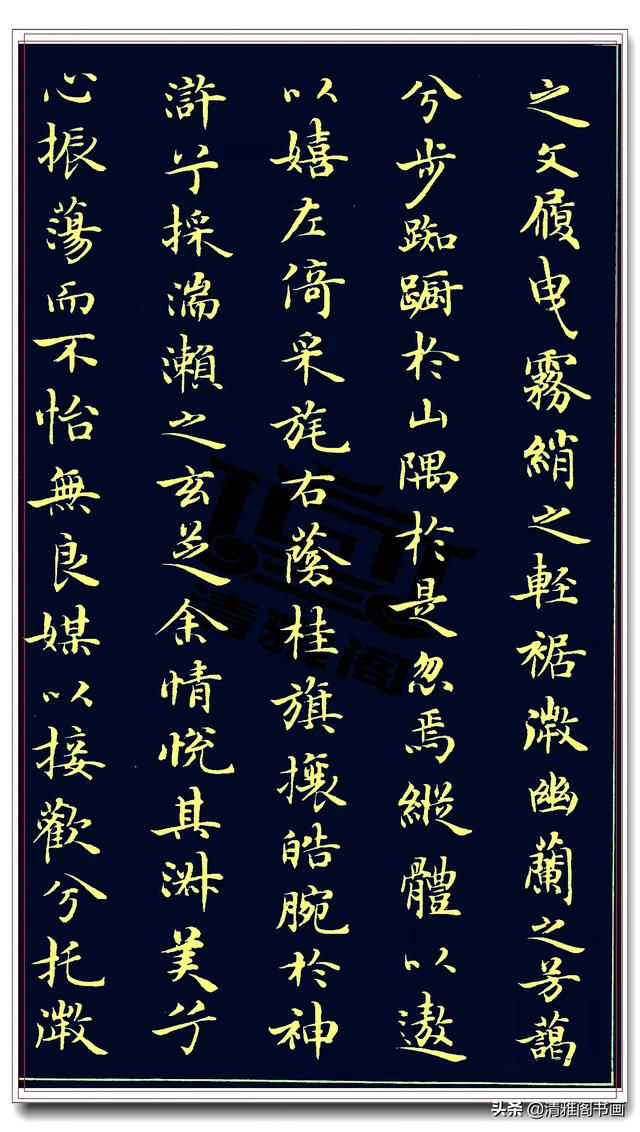 之文履曳霧綃之輕裾微幽蘭之芳藹
兮步踟蹰於山隅於是忽焉縱體以遨
以嬉左倚采旄右蔭桂旗攘皓腕於神
滸兮採湍瀨之玄芝余情悅其淑美兮
心振蕩而不怡無良媒以接歡兮托微
清雅阁
头条 @清雅阁书画